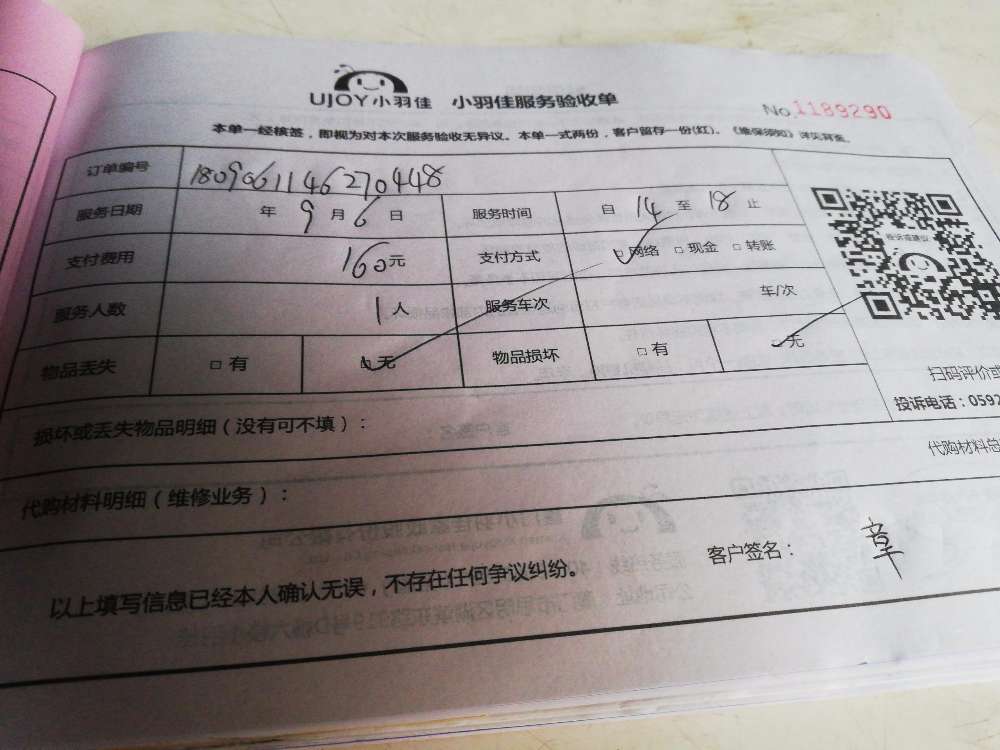 UJOY小羽佳 小羽佳服务验收单
No.1189290
本单一经核签，即视为对本次服务验收无异议。本单一式两份，客户留存一份(红)。《维保须知》详见背面。
订单编号 1809061146270448
服务日期 年 9 月 6 日 服务时间 自 14 至 18 止
支付费用 160元 支付方式 网络 □ 现金 □ 转账
服务人数 1 人 服务车次 车/次
物品丢失 □ 有 无 物品损坏 □ 有 无
投诉或建议
扫码评价或
投诉电话：0592
损坏或丢失物品明细（没有可不填）：
代购材料总
代购材料明细（维修业务）：
以上填写信息已经本人确认无误，不存在任何争议纠纷。 客户签名： 章